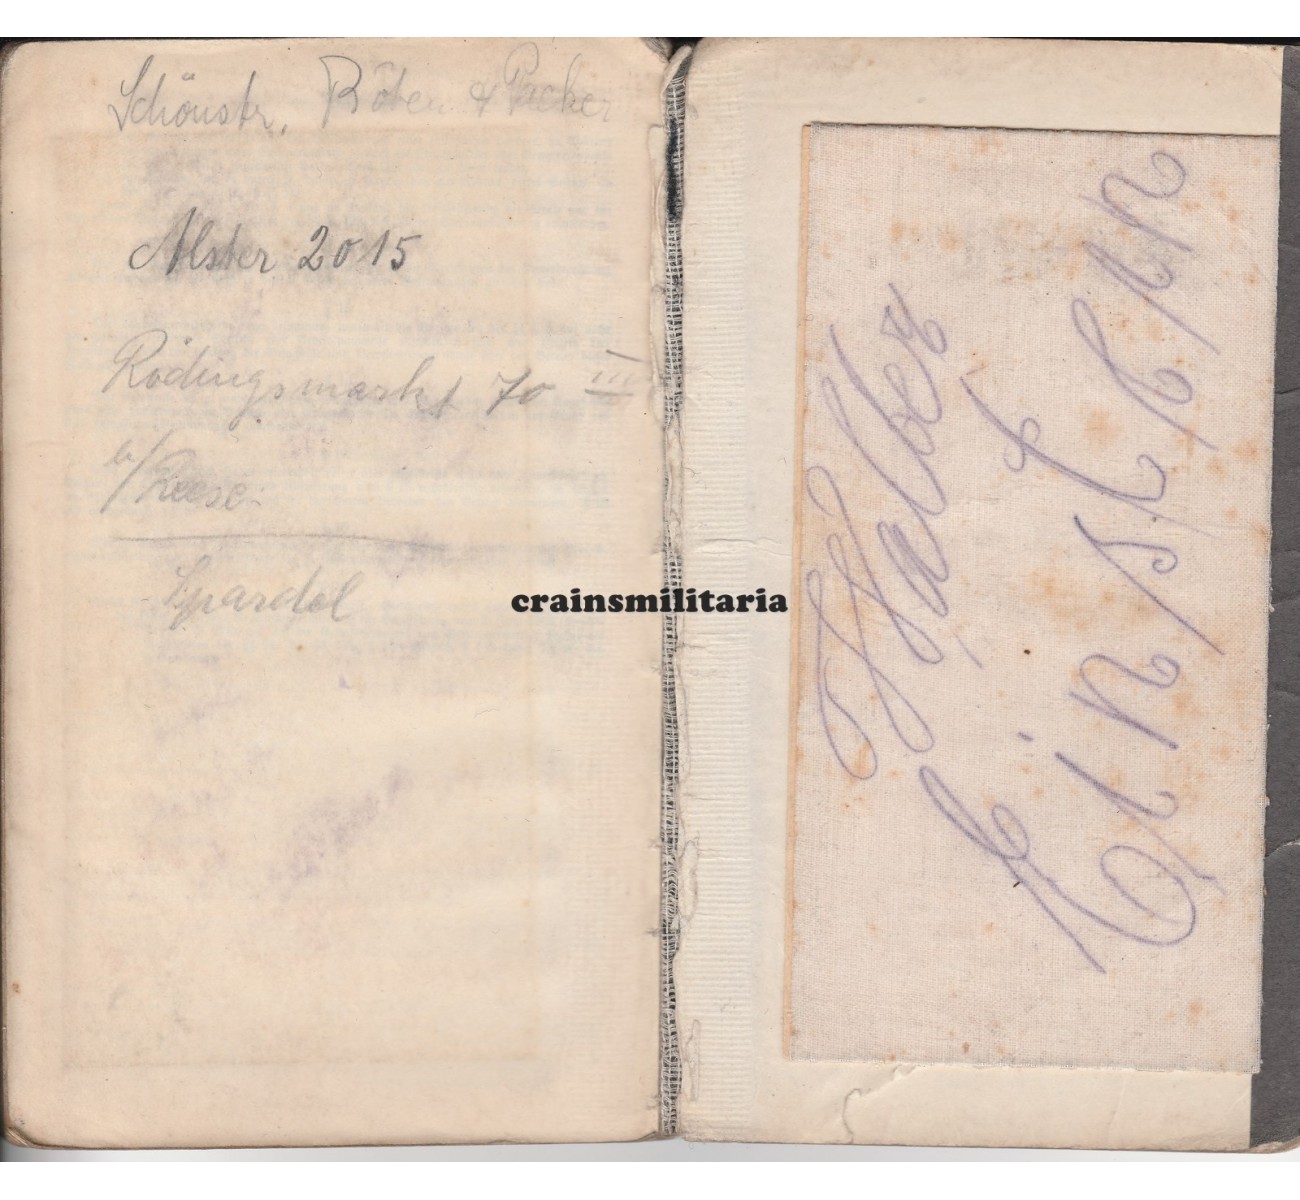 Schönstr. Röber & Pacher
Alster 2015
Rödingsmarkt 70 III
b/Reese.
Spardel
crainsmilitaria
Halber